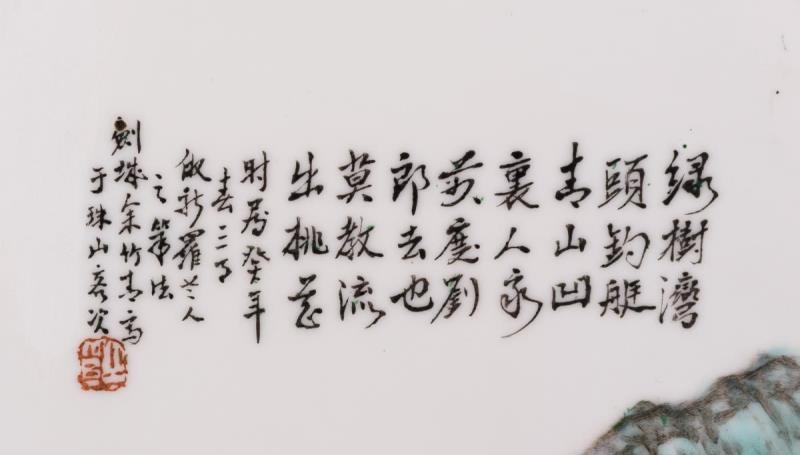 緑樹灣
頭釣艇
青山凹
裏人家
前度劉
郎去也
莫教流
出桃花
时属癸年
春三月
倣新羅山人
之筆法
劍城余竹青寫
于珠山客次